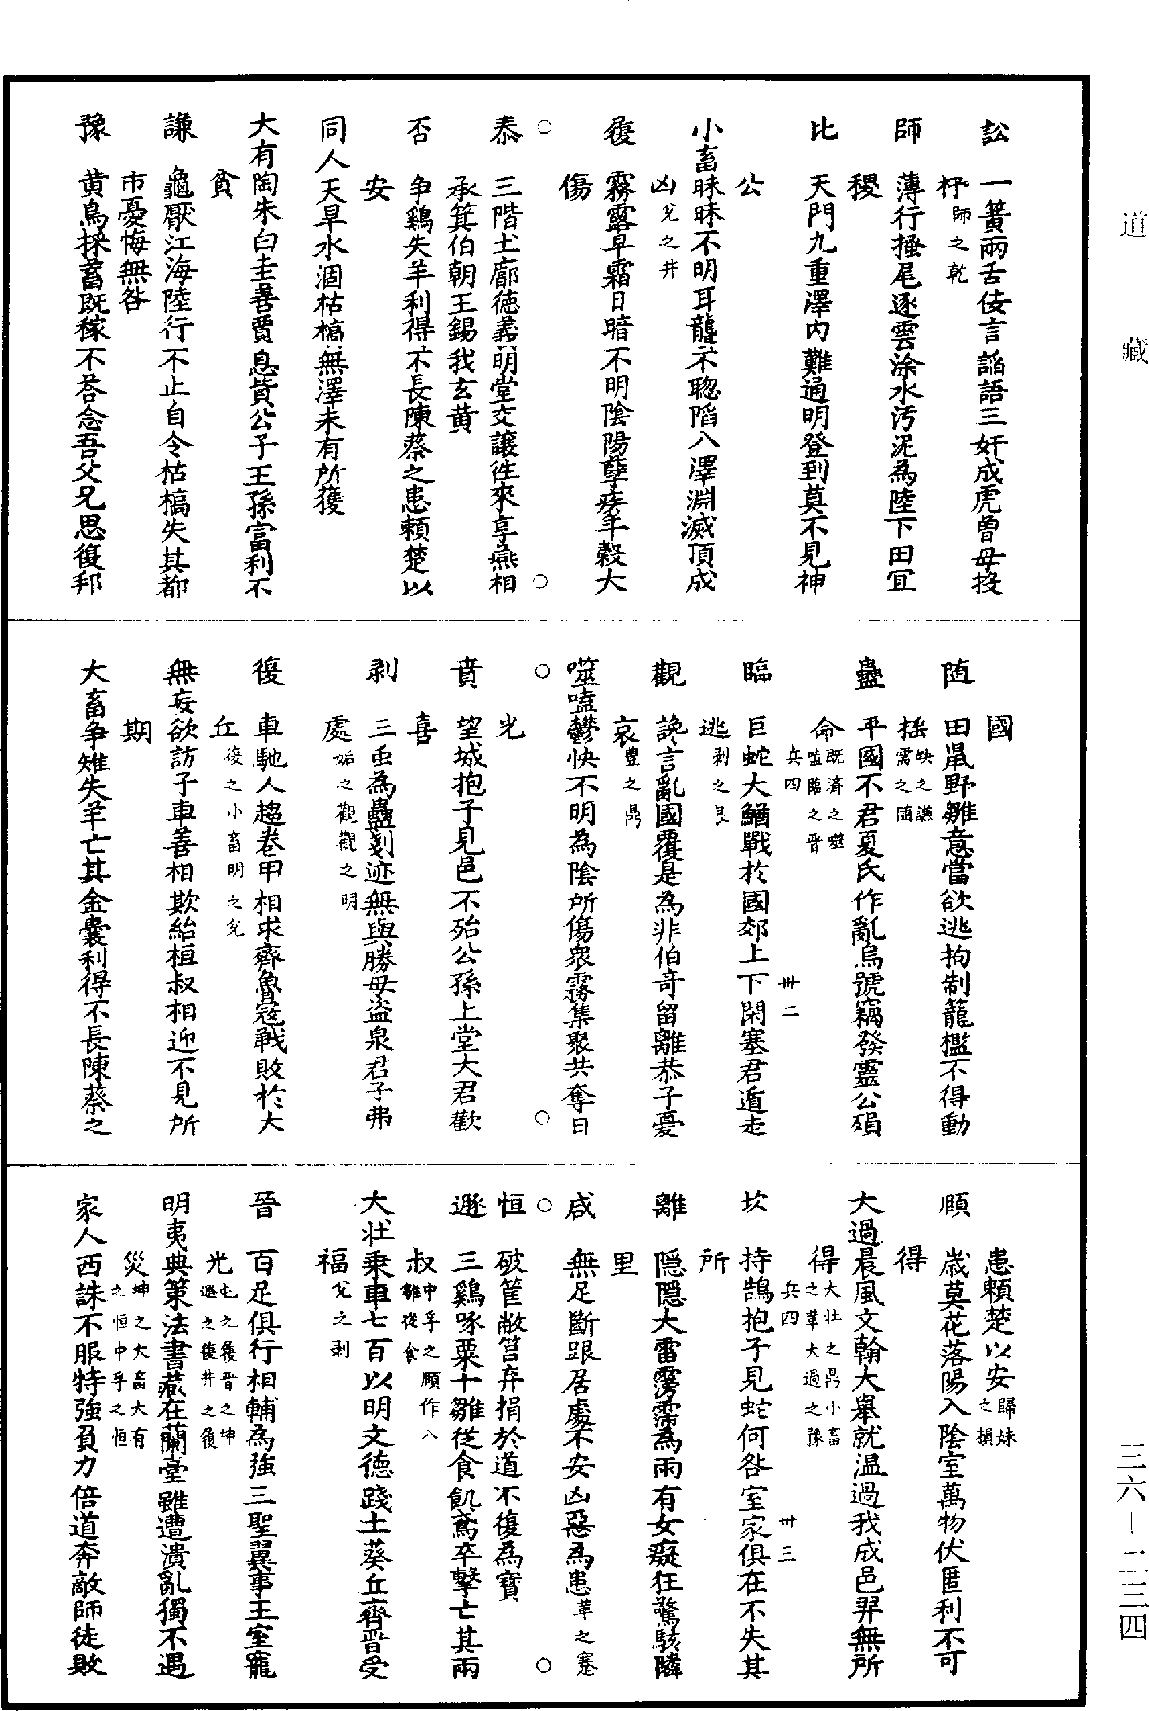 道藏
三六—二三四
訟　一簧兩舌佞言謟語三奸成虎曾母投
杼師之乾
師　薄行搔尾逐雲除水污泥為陸下田宜
稷
比　天門九重深內難通明登到莫不見神
公
小畜眛眛不明耳聾不聦陷入深淵滅頂成
凶兌之井
履　霧露早霜日暗不明陰陽孽疾年穀大
傷
○　○
泰　三階土廓德義明堂交讓徃來享燕相
承箕伯朝王錫我玄黃
否　争鷄失羊利得不長陳蔡之患賴楚以
安
同人天旱水涸枯槁無澤未有所獲
大有陶朱白圭善賈息貨公子王孫富利不
貪
謙　龜厭江海陸行不止自令枯槁失其都
市憂悔無咎
豫　黄鳥採蓄既稼不荅念吾父兄思復邦
國
随　田鼠野雛意當欲逃拘制籠檻不得動
揺蚗之謙需之随
蠱　平國不君夏氏作亂烏號竊發靈公殞
命既濟之噬噬臨之晉
兵四　卅二
臨　巨蛇大鰌戰於國郊上下閉塞君道走
逃剥之艮
觀　讒言亂國覆是為非伯奇留離恭子憂
哀豐之鼎
噬嗑鬱怏不明為陰所傷衆霧集聚共奪日
○　○
光
賁　望城抱子見邑不殆公孫上堂大君歡
喜
剥　三䖝為蠱剗迹無與勝母盗泉君子弗
處姤之觀觀之明
復　車馳人趨卷甲相求齊魯寇戰敗於大
丘復之小畜明之兌
無妄欲訪子車善相欺紿桓叔相迎不見所
期
大畜争雉失羊亡其金囊利得不長陳蔡之
患賴楚以安歸妹之損
頥　歲莫花落陽入陰室萬物伏匿利不可
得
大過晨風文翰大舉就溫過我成邑羿無所
得大壮之鼎小畜之革大過之豫
兵四　卅三
坎　持鵠抱子見蛇何咎室家俱在不失其
所
離　隱隱大雷霶霈為雨有女癡狂驚駭隣
里
咸　無足斷跟居處不安凶惡為患革之蹇
○　○
恒　破筐敝筥弃捐於道不復為寶
遯　三鷄啄粟十雛從食飢鳶卒擊亡其兩
叔中孚之頥作八雛從食
大壮乗車七百以明文德踐土葵丘齊晋受
福兌之剥
晉　百足俱行相輔為強三聖翼事王室寵
光屯之履晋之坤遯之復井之復
明夷典策法書藏在蘭臺雖遭潰亂獨不遇
災坤之大畜大有之恒中孚之恒
家人西誅不服特強負力倍道奔敵師徒敗